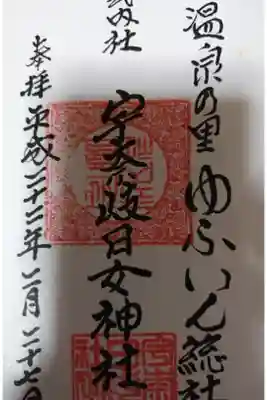 温泉の里ゆふいん総社
式内社
宇奈岐日女神社
奉拝 平成二十二年 二月 二十七日